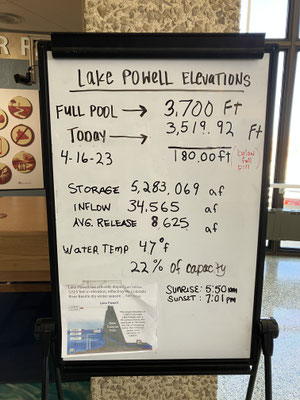 Lake Powell Elevations
Full Pool → 3,700 Ft
Today → 3,519.92 Ft
4-16-23 180.00 ft below full pool
Storage 5,283,069 af
Inflow 34,565 af
Avg. Release 8625 af
Water Temp 47°f
22% of capacity
Sunrise: 5:50 am
Sunset: 7:01 pm
Lake Powell